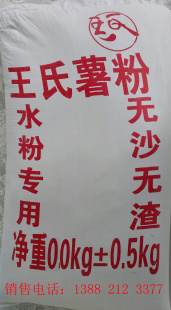 王氏薯粉
水粉专用
无沙无渣
净重00kg±0.5kg
销售电话：1388 212 3377